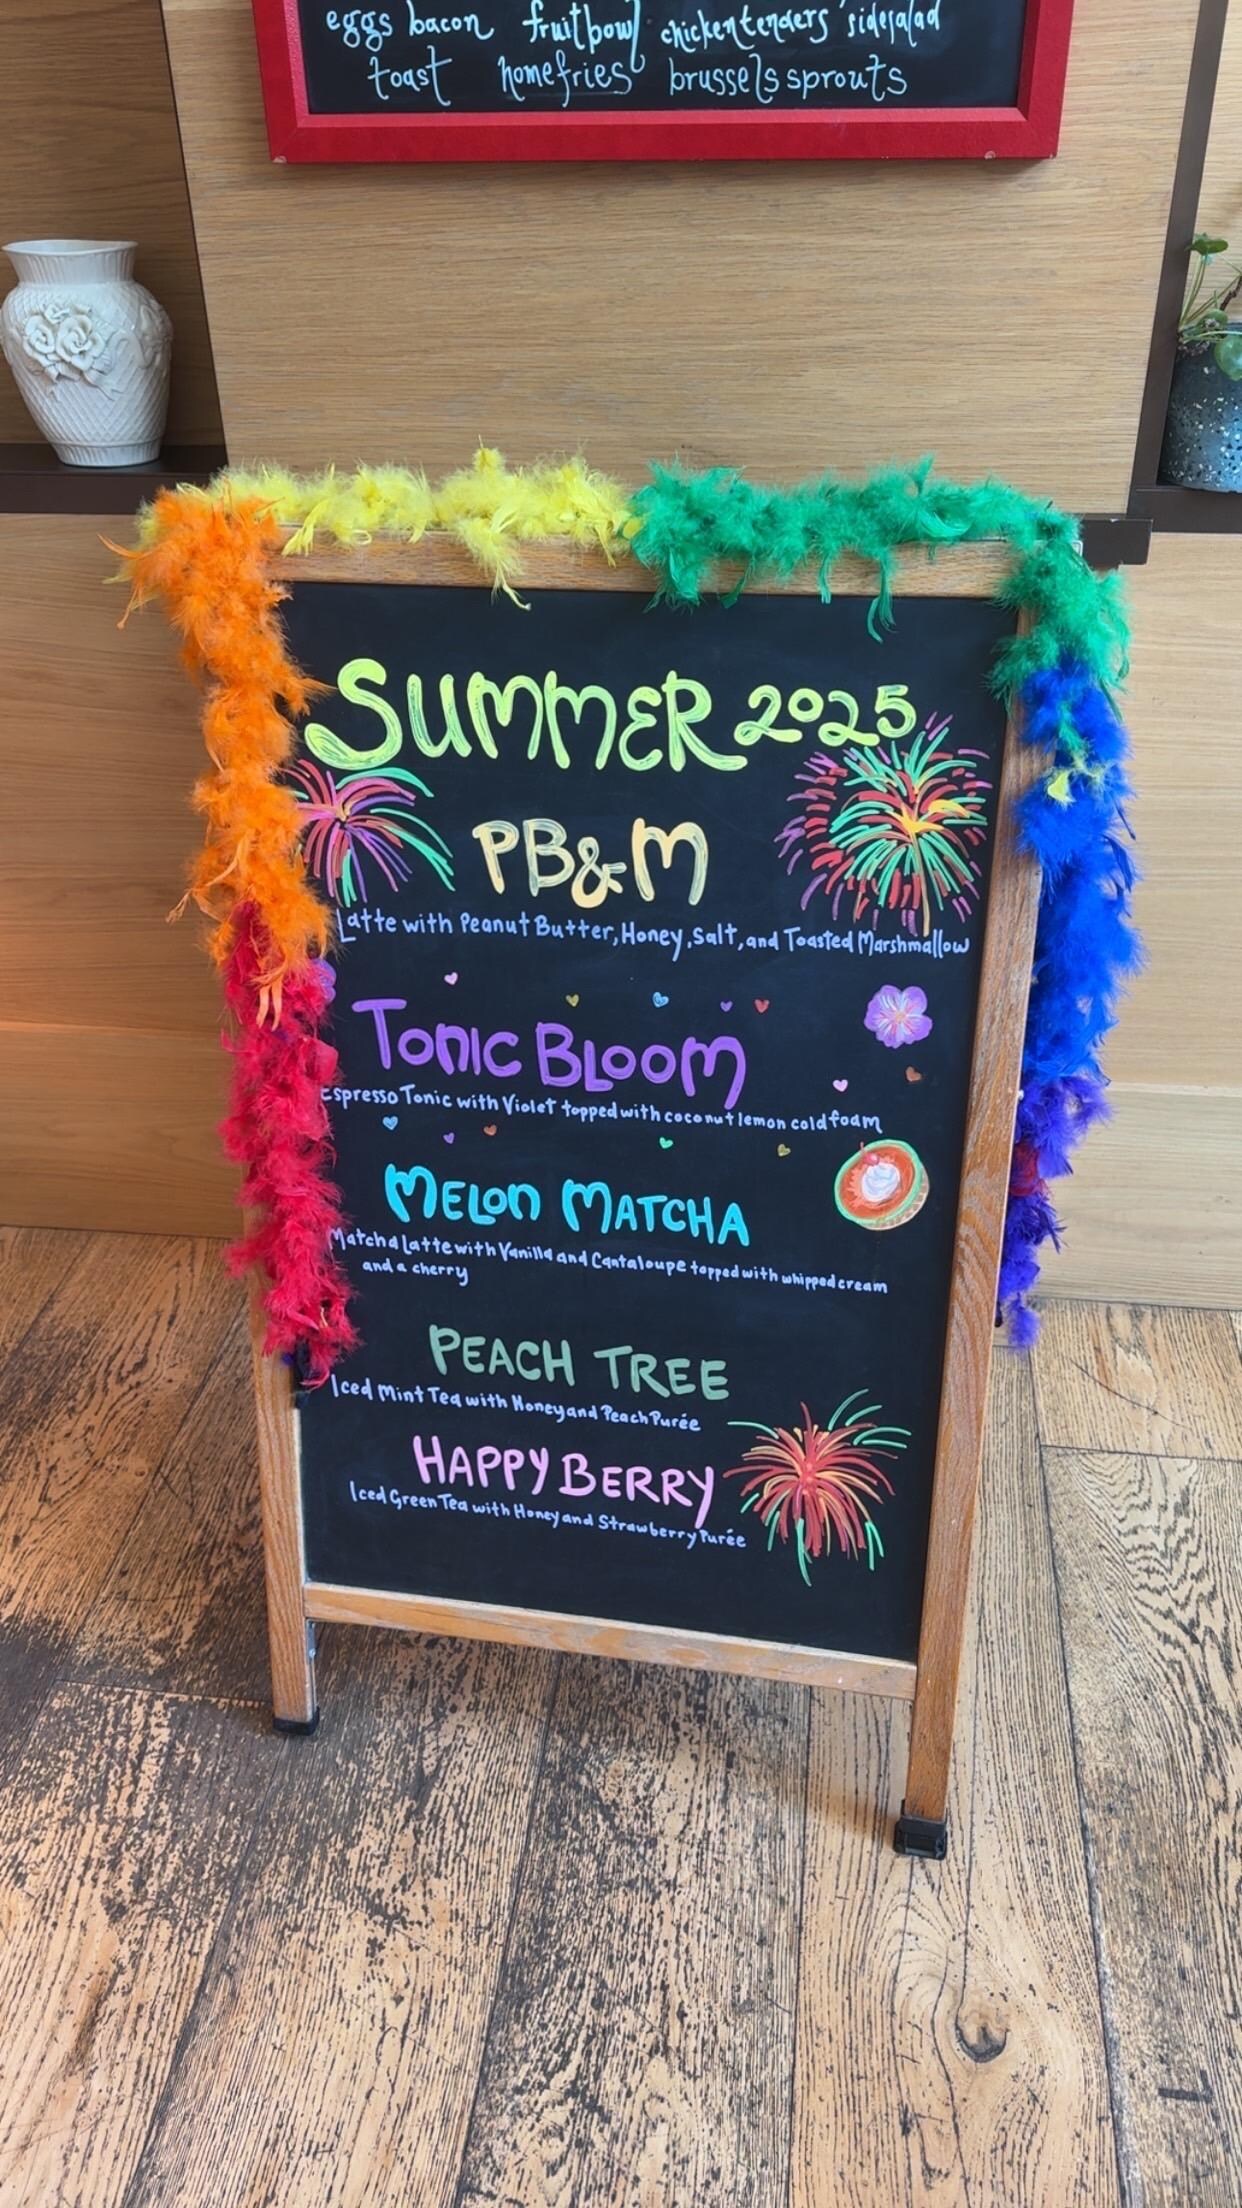 eggs bacon fruitbowl chickentenders sidesalad
toast homefries brussels sprouts
SUMMER 2025
PB&M
Latte with Peanut Butter, Honey, Salt, and Toasted Marshmallow
TONIC BLOOM
Espresso Tonic with Violet topped with coconut lemon cold foam
MELON MATCHA
Matcha Latte with Vanilla and Cantaloupe topped with whipped cream
and a cherry
PEACH TREE
Iced Mint Tea with Honey and Peach Purée
HAPPY BERRY
Iced Green Tea with Honey and Strawberry Purée